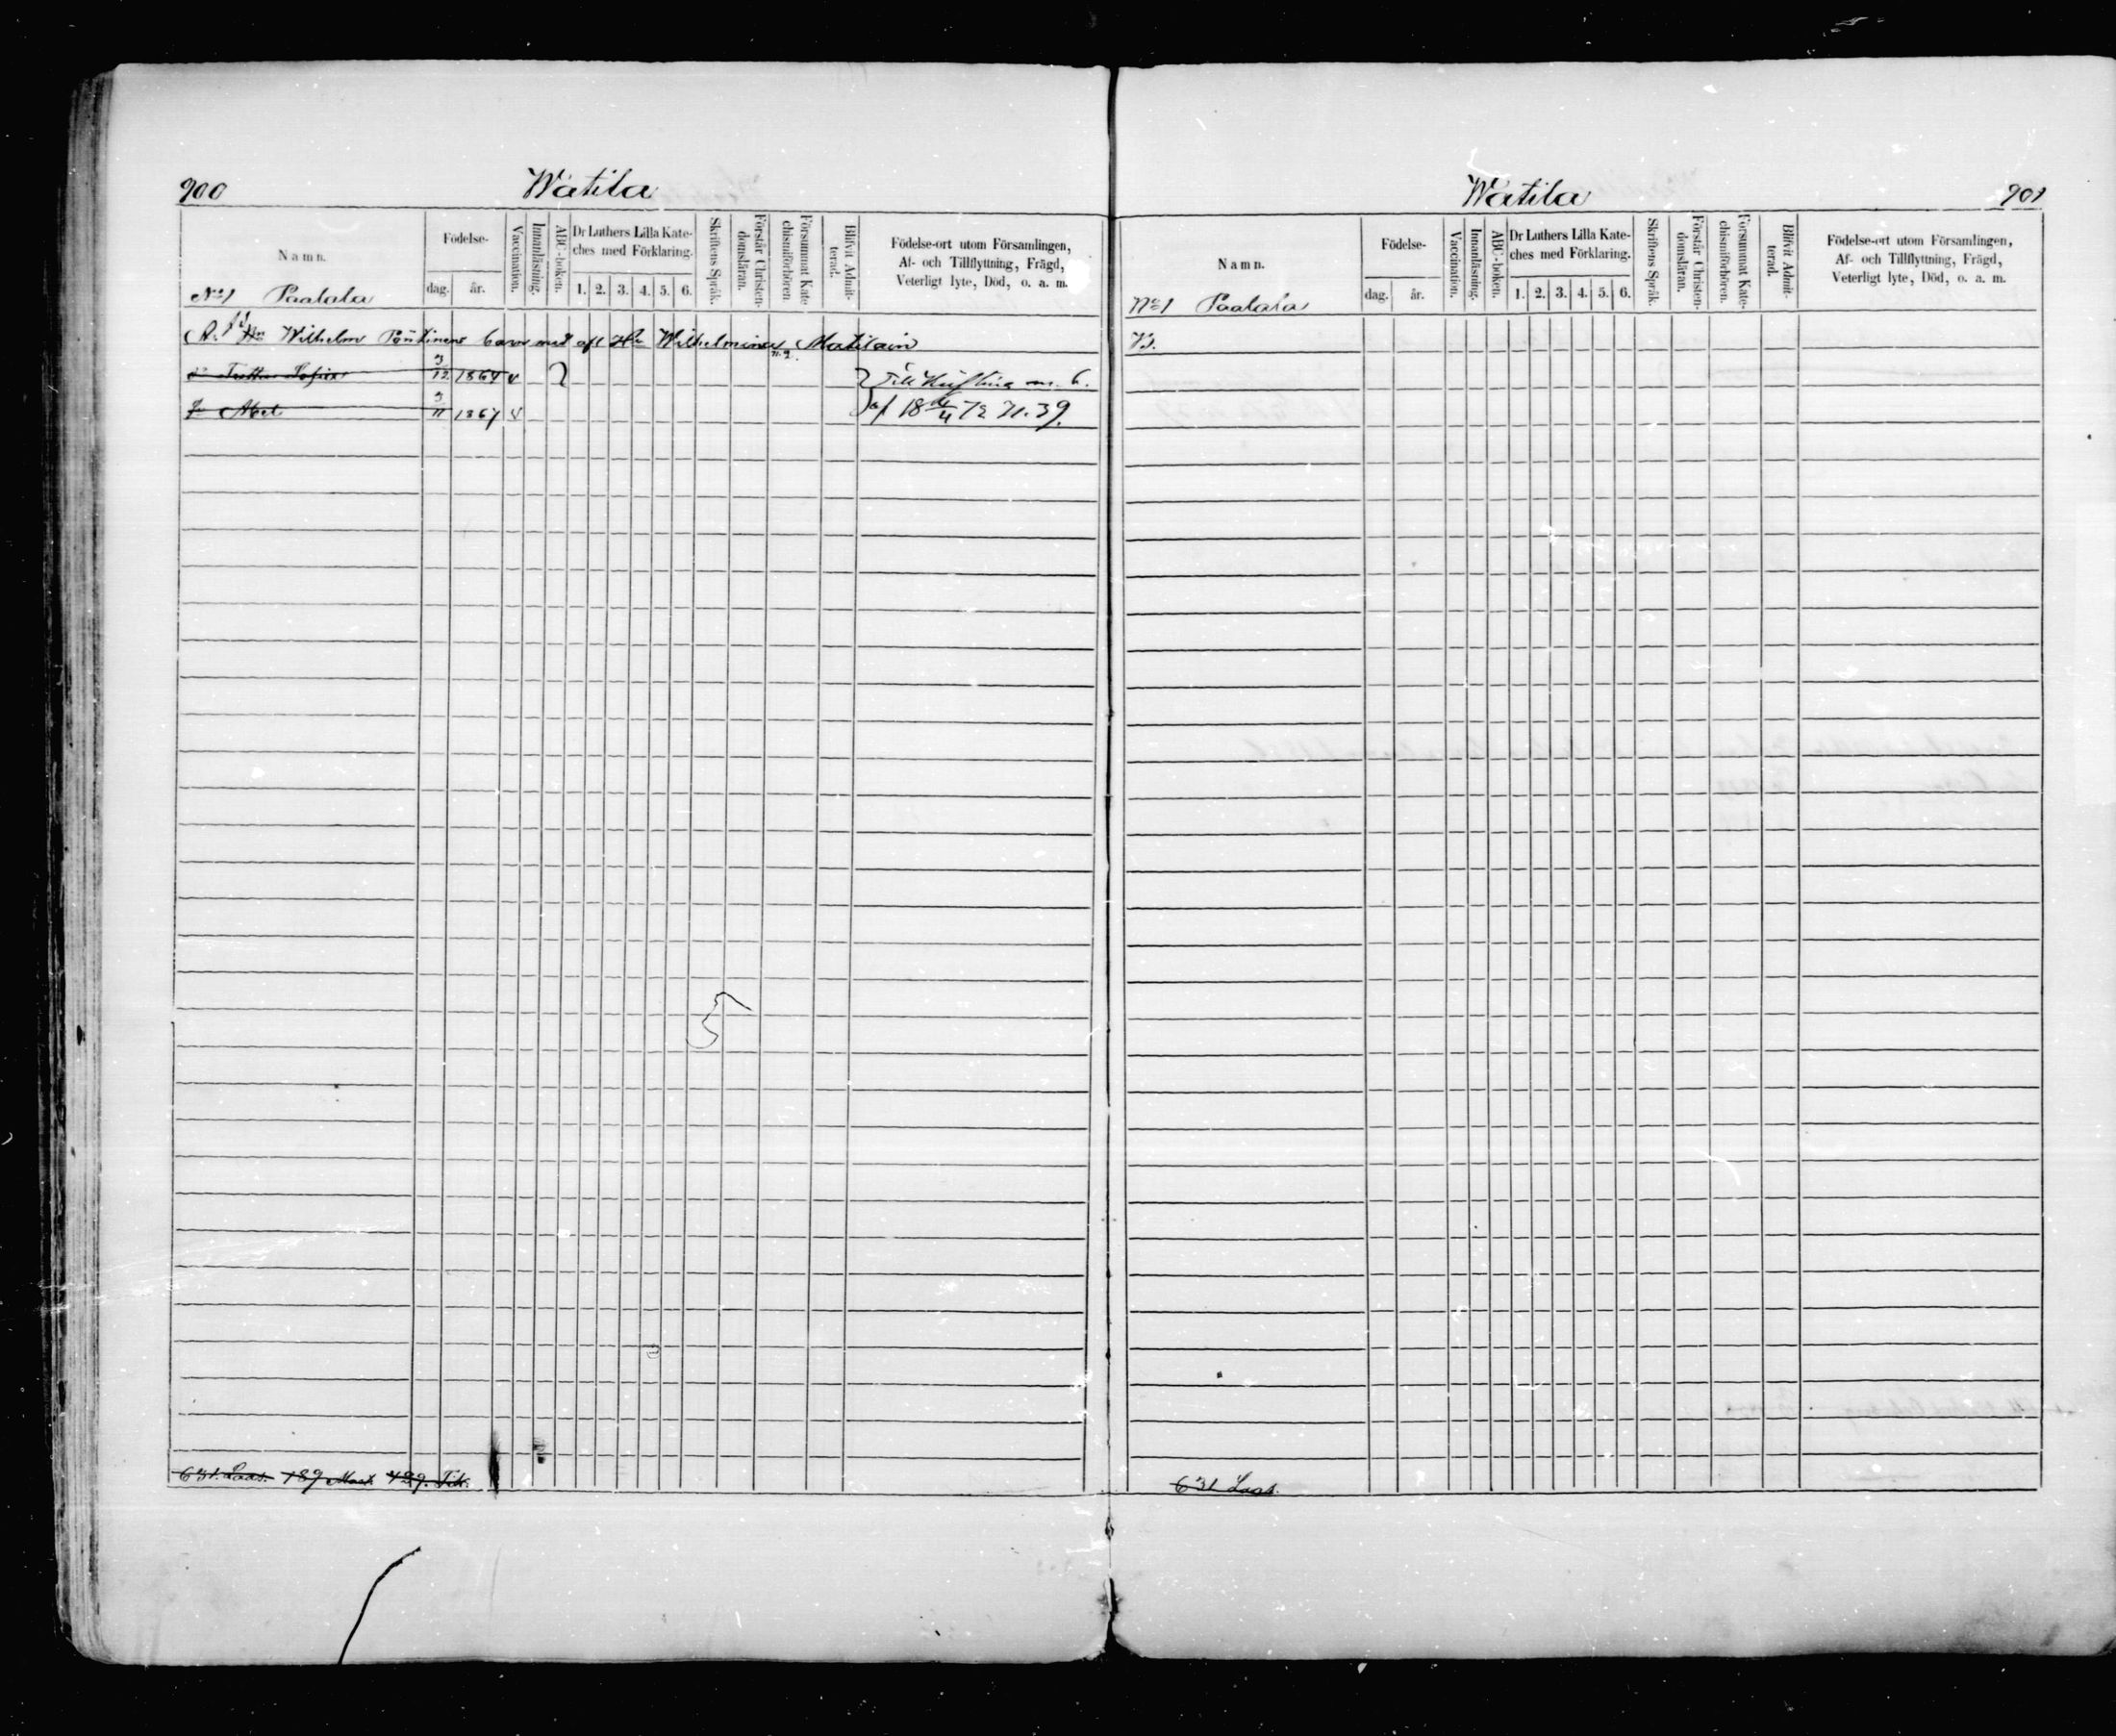 900 Watila
Namn.
Födelse-
dag. år.
Vaccination.
Innanläsning.
ABC-boken.
Dr Luthers Lilla Kate-
ches med Förklaring.
1. 2. 3. 4. 5. 6.
Skriftens Språk.
Förstår Christen-
domsläran.
Försummat Kate-
chismiförhören.
Blifvit Admit-
terad.
Födelse-ort utom Församlingen,
Af- och Tillflyttning, Frägd,
Veterligt lyte, Död, o. a. m.
No 1 Paalala
Wilhelm barn med afl Wilhelmina Matilain
n. 2.
Sofia 3/12 1864 v Till
Abel 3/11 1867 v af 18 /4 72 N. 39.
631. Laas. 189 Maat. 429. Tik.
Watila 901
Namn.
Födelse-
dag. år.
Vaccination.
Innanläsning.
ABC-boken.
Dr Luthers Lilla Kate-
ches med Förklaring.
1. 2. 3. 4. 5. 6.
Skriftens Språk.
Förstår Christen-
domsläran.
Försummat Kate-
chismiförhören.
Blifvit Admit-
terad.
Födelse-ort utom Församlingen,
Af- och Tillflyttning, Frägd,
Veterligt lyte, Död, o. a. m.
No 1 Paalala
B.
631 Laas.